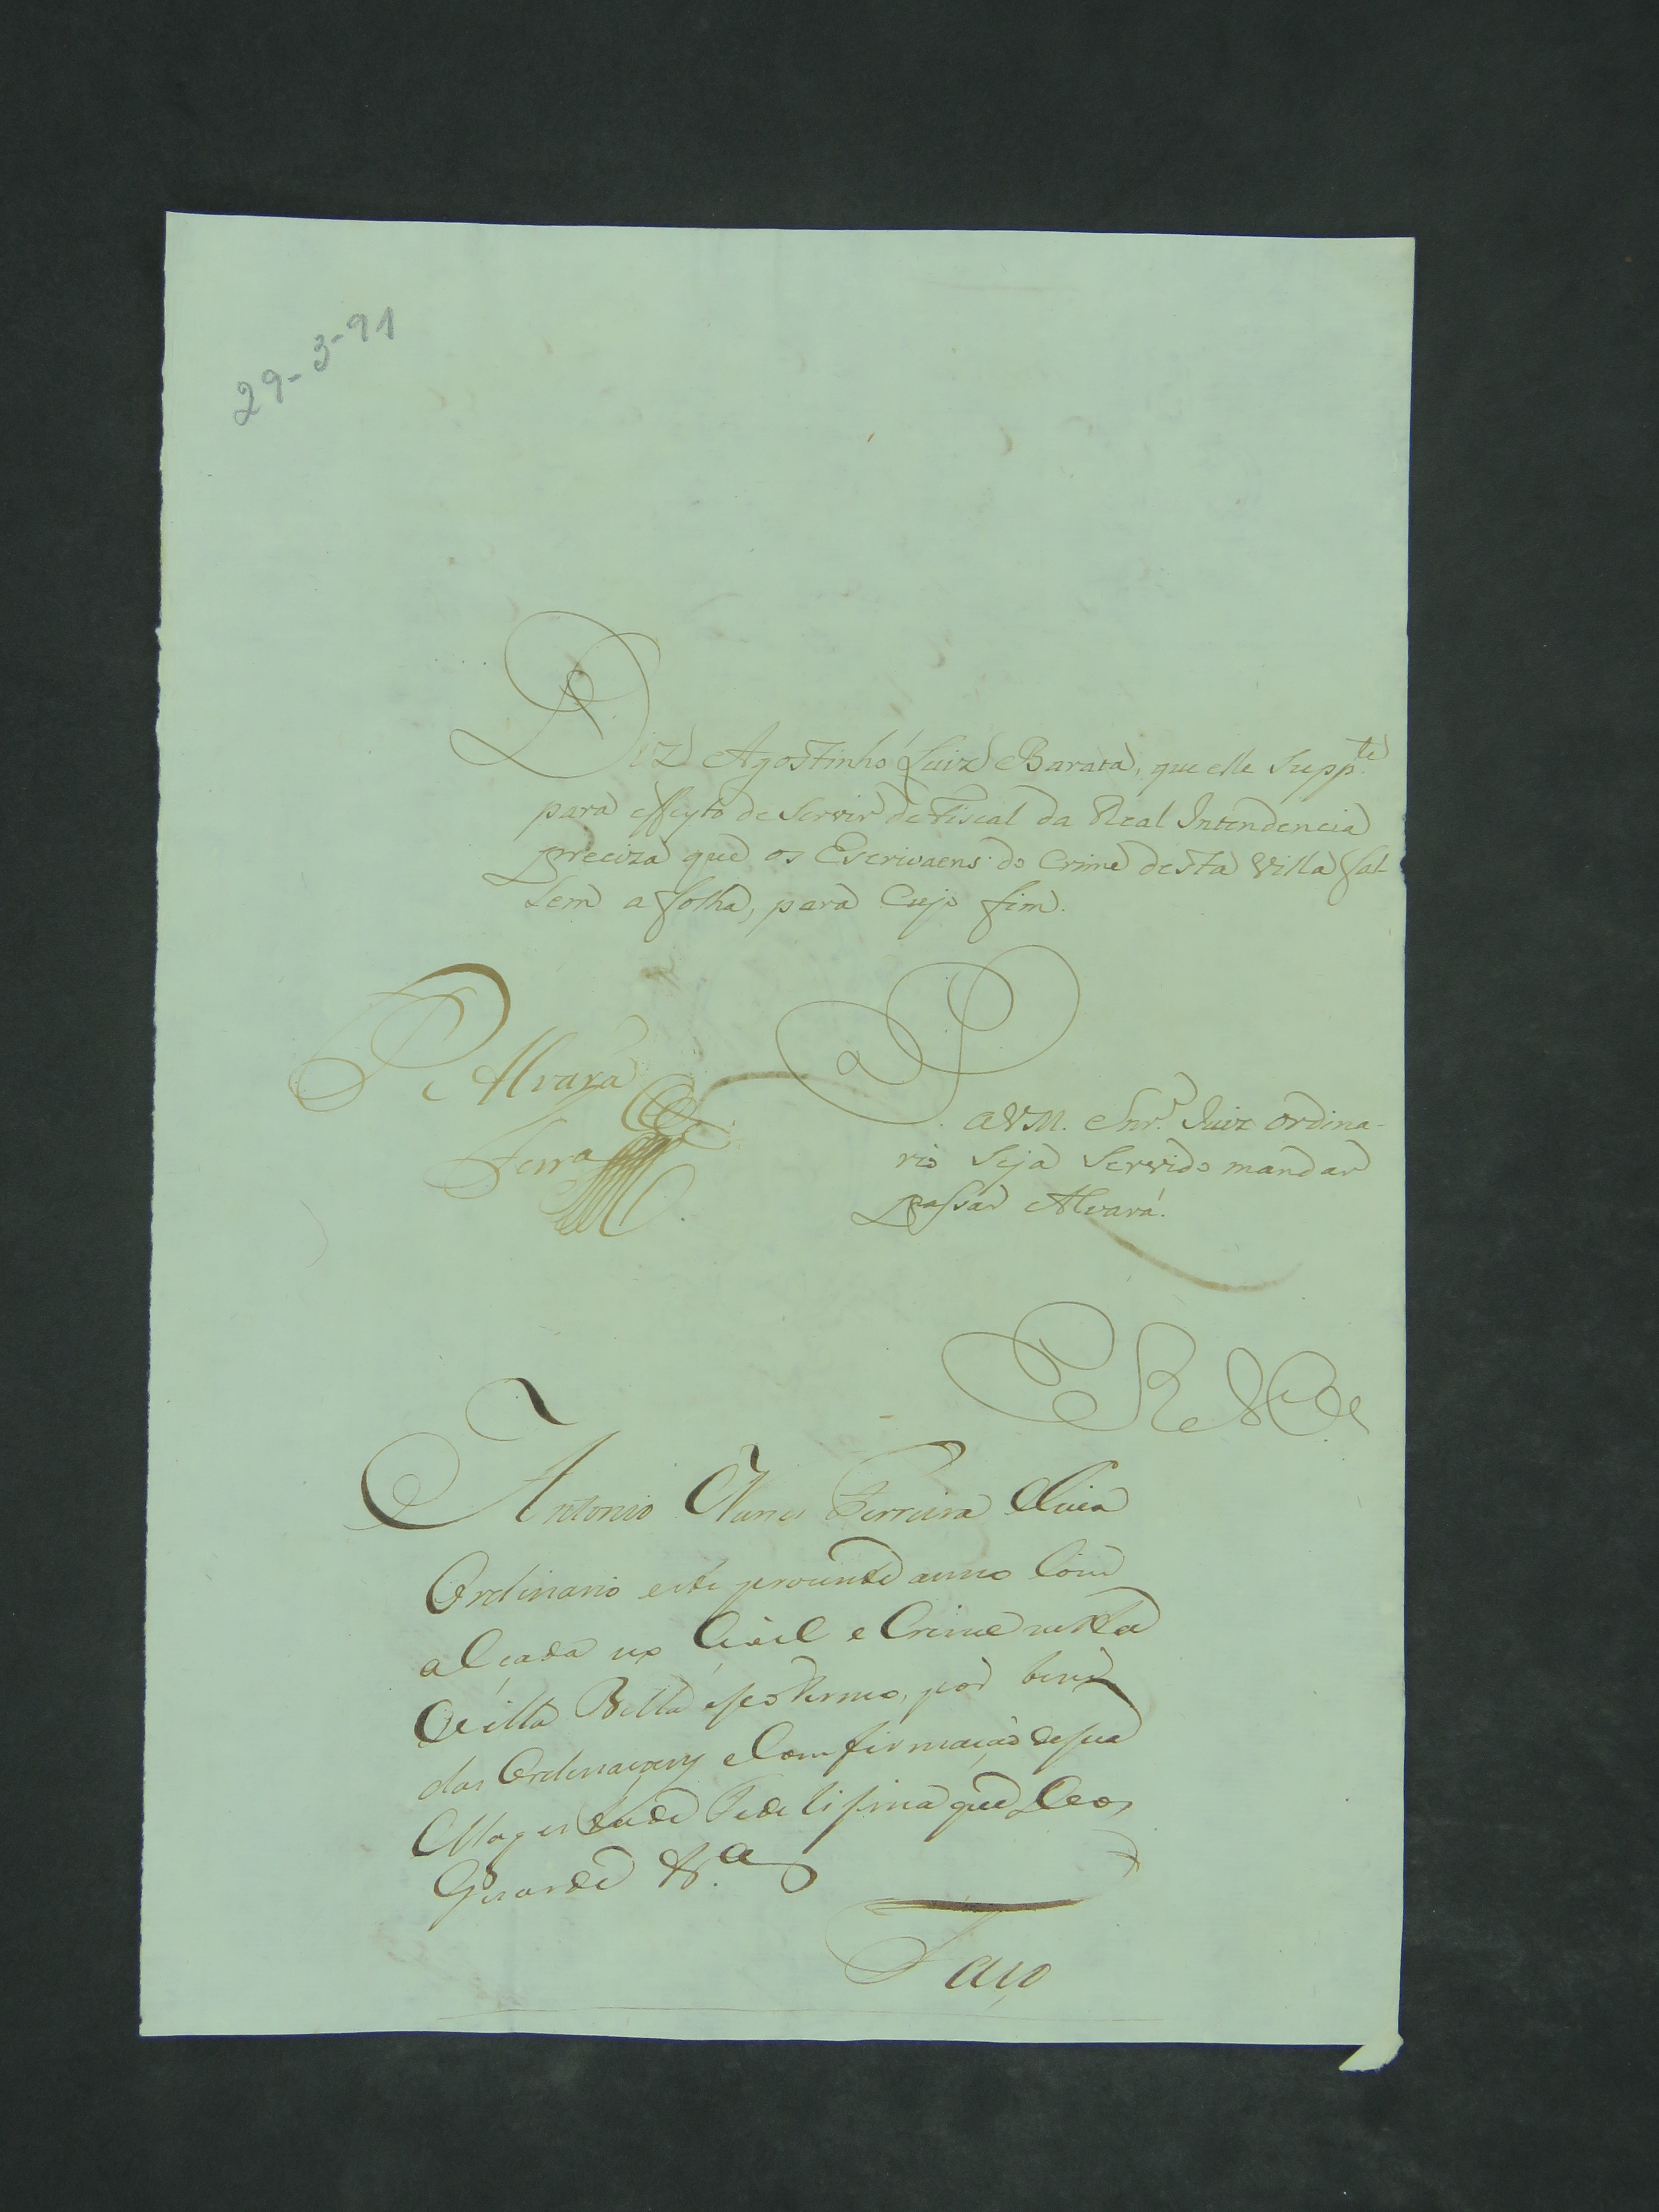 29-3-91
Diz Agostinho Luiz Barata, que elle Supp.te
para effeyto de Servir de Fiscal da Real Intendencia
preciza que os Escrivaens do Crime desta Villa fal-
lem a folha, para Cujo fim.
P. Alvará
Ferra
P.
a VM. Snr. Juiz ordina-
rio Seja Servido mandar
passar Alvará.
E R M.ce
Antonio Nunes Ferreira Juiz
Ordinario este prezente anno Com
alçada no Civil e Crime nesta
Villa Bella e seo termo, por bem
das Ordenaçoens e Comfirmação de sua
Magestade Fedelisima que Deos
Guarde &.a
Faço